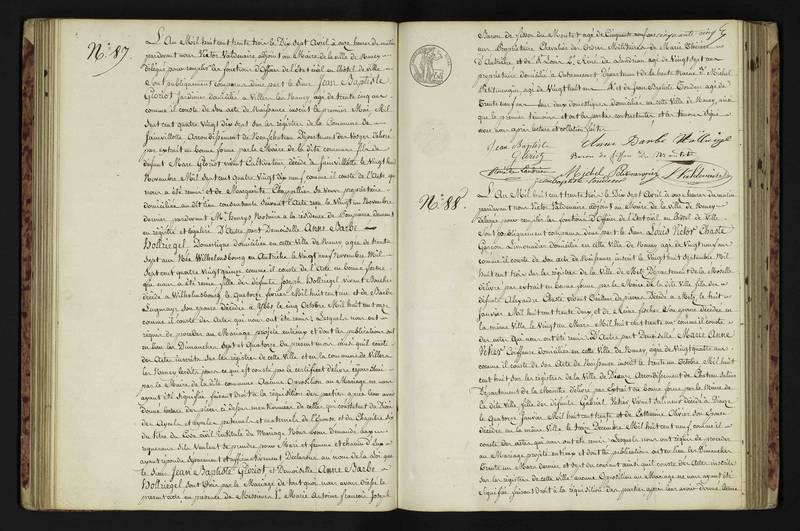 N.° 87.
L'An Mil huit cent trente trois le Dix sept Avril à onze heures du matin
pardevant nous Victor Valdenaire adjoint au Maire de la ville de Nancy
délégué pour remplir les fonctions d'Officier de l'Etat civil en l'hôtel de ville
sont publiquement comparus d'une part le Sieur Jean Baptiste
Gloriot Jardinier domicilié à Villers les Nancy, agé de trente cinq ans
comme il conste de son acte de Naissance inscrit le premier Mai Mil
Sept cent quatre vingt dix sept sur les registres de la Commune de
Jainvillotte Arrondissement de Neufchateau Département des Vosges délivré
par extrait en bonne forme par le Maire de la dite commune, fils de
défunt Marc Gloriot vivant Cultivateur décédé à Jainvillotte le Vingt huit
Novembre Mil Sept cent quatre vingt dix neuf comme il conste de l'acte qui
nous a été remis et de Marguerite Chapellier sa veuve propriétaire
domiciliée au dit lieu consentante suivant l'acte reçu le Vingt un Novembre
dernier pardevant M.e Notaire à la résidence de dument
enregistré et légalisé. D'autre part Demoiselle Anne Barbe
Hollriegel, Domestique domiciliée en cette Ville de Nancy agée de trente
sept ans Née Wilhelmsbourg en Autriche le Vingt neuf Novembre Mil
Sept cent quatre Vingt quinze comme il conste de l'acte en bonne forme
qui nous a été remis fille de défunts Joseph Hollriegel vivant Boucher
décédé à Wilhelmsbourg le Quatorze février Mil huit cent un et de Barbe
son épouse décédée à le cinq Octobre Mil huit cent onze
comme il conste des actes qui nous ont été remis. Lesquels nous ont
requis de procéder au Mariage projeté entre eux et dont les publications ont
eu lieu les Dimanches Sept et Quatorze du présent mois ainsi qu'il conste
des actes inscrits sur les registres de cette Ville et en la commune de Villers
les Nancy lesdits jours ce qui est constaté par le certificat délivré
par le Maire de la dite commune Aucune Opposition au Mariage ne nous
ayant été signifiée, faisant droit à la réquisition des parties après leur avoir
donné lecture des pièces ci dessus mentionnées de celles qui constatent du Décès
des Ayeuls et Ayeules paternels et maternels de l'Epouse et du Chapitre Six
du titre du Code civil Intitulé du Mariage Nous avons demandé
s'ils Veulent se prendre pour Mari et femme et chacun d'eux
ayant répondu séparément et affirmativement Déclarons au nom de la Loi que
le Sieur Jean Baptiste Gloriot et Demoiselle Anne Barbe
Hollriegel sont Unis par le Mariage de tout quoi nous avons dressé le
présent acte en présence de Messieurs Marie Antoine françois Joseph
Baron de fisson du Montet agé de Cinquante cinq
ans Propriétaire Chevalier des Ordres Militaires de Marie Thérèse
d'Autriche et de S.t Louis, René de Landrian agé de Vingt sept ans
propriétaire domicilié à Département de la haute Marne, Michel
agé de Vingt huit ans et de Jean Baptiste agé de
Trente ans tous deux domestiques domiciliés en cette Ville de Nancy, ainsi
que le premier témoin et ont les parties contractantes et les témoins signé
avec nous après lecture et collation faite
Jean Baptiste
Gloriot
Anna Barba Hollriegel
Baron de fisson du Montet
Michel
V. Valdenaire
N.° 88.
L'An Mil huit cent trente trois le Dix sept Avril à onze heures du matin
pardevant nous Victor Valdenaire Adjoint au Maire de la ville de Nancy
délégué pour remplir les fonctions d'Officier de l'Etat civil en l'hôtel de Ville
sont publiquement comparus d'une part le Sieur Louis Victor Chaste
Garçon Limonadier domicilié en cette Ville de Nancy agé de Vingt neuf ans
comme il conste de son acte de Naissance inscrit le Vingt huit Septembre Mil
huit cent trois sur les registres de la Ville de Metz Département de la Moselle
délivré par extrait en bonne forme par le Maire de la dite Ville fils de
défunts Alexandre Chaste vivant de pierres décédé à Metz le huit
Janvier Mil huit cent trente deux et de Anne fischer son épouse décédée en
la même Ville le Vingt un Mars Mil huit cent trente un comme il conste
des actes qui nous ont été remis D'autre part Demoiselle Marie Anne
Coiffeuse domiciliée en cette Ville de Nancy, agée de Vingt quatre ans
comme il conste de son acte de Naissance inscrit le trente un Octobre Mil huit
cent huit sur les registres de la Ville de Dieuze Arrondissement de Chateau Salins
Département de la Meurthe délivré par Extrait en bonne forme par le Maire de
la dite Ville, fille des défunts Gabriel vivant Salineur décédé à Dieuze
le Quatorze Janvier Mil huit cent trente et de Catherine Olivier son épouse
décédée en la même Ville le treize Décembre Mil huit cent neuf comme il
conste des actes qui nous ont été remis. Lesquels nous ont requis de procéder
au Mariage projeté entre eux et dont les publications ont eu lieu les Dimanches
Trente un Mars dernier et sept du courant ainsi qu'il conste des actes inscrits
sur les registres de cette ville aucune Opposition au Mariage ne nous ayant été
signifiée, faisant Droit à la réquisition des parties après leur avoir donné lecture